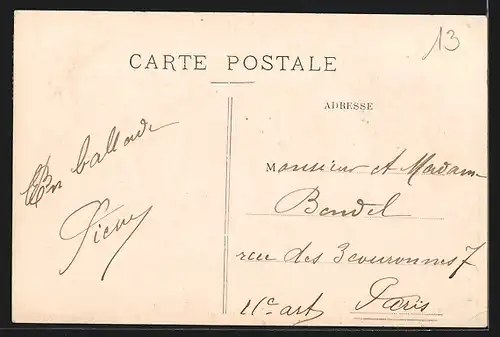 13
CARTE POSTALE
ADRESSE
En ballade
Pierre
Monsieur et Madame
Bendel
rue des 3 couronnes 7
11e art Paris